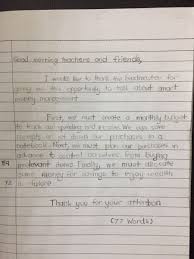 Good morning teachers and friends,
I would like to thank the headmaster for
giving me this opportunity to talk about smart
money management.
First, we must create a monthly budget
to track our spending and income. We can save
receipts or jot down our purchases in a
notebook. Next, we must plan our purchases in
advance to control ourselves from buying
irrelevant items. Finally, we must allocate
some money for savings to enjoy wealth
in future.
Thank you for your attention.
(77 Words)